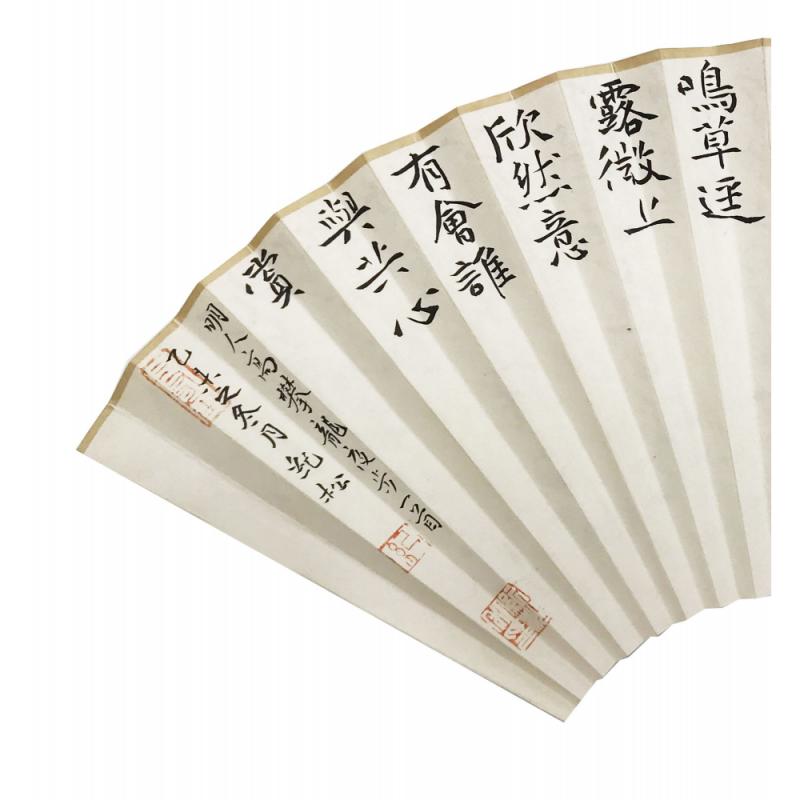 鳴草逕
露微上
欣然意
有會誰
與共心
賞
明人高攀龍夜步一首
乙未之冬月紀松